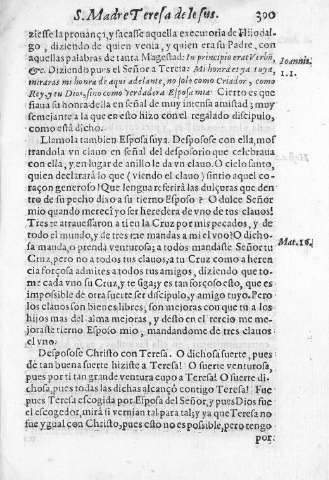 S. Madre Teresa de Iesus. 300
ziesse la prouança, y sacasse aquella executoria de Hijodal-
go, diziendo de quien venia, y quien era su Padre, con
aquellas palabras de tanta Magestad: In principio erat Verbũ,
&c. Diziendo pues el Señor a Teresa: Mi honra es ya tuya,
miraras mi honra de aqui adelante, no solo como Criador, como
Rey, y tu Dios, sino como verdadera Esposa mia. Cierto es que
fiaua su honra della en señal de muy intensa amistad; muy
semejante a la que en esto hizo con el regalado discipulo,
como està dicho.
Ioannis.
1.1.
Llamola tambien Esposa suya. Desposose con ella, mos
trandola vn clauo en señal del desposorio que celebraua
con ella, y en lugar de anillo le da vn clauo. O cielo santo,
quien declararà lo que (viendo el clauo) sintio aquel co-
raçon generoso! Que lengua referirà las dulçuras que den-
tro de su pecho dixo a su tierno Esposo? O dulce Señor
mio quando mereci yo ser heredera de vno de tus clauos!
Tres te atrauessaron a ti en la Cruz por mis pecados, y de
todo el mundo, y de tres me mandas a mi el vno? O dicho-
sa manda, o prenda venturosa; a todos mandaste Señor tu
Cruz, pero no a todos tus clauos, a tu Cruz como a heren
cia forçosa admites a todos tus amigos, diziendo que to-
me cada vno su Cruz, y te siga; y es tan forçoso esto, que es
impossible de otra suerte ser discipulo, y amigo tuyo. Pero
los clauos son bienes libres, son mejoras con que tu a los
hijos mas del alma mejoras, y desto en el tercio me me-
joraste tierno Esposo mio, mandandome de tres clauos
el vno.
Mat. 16.
Desposose Christo con Teresa. O dichosa suerte, pues
de tan buena suerte hiziste a Teresa! O suerte venturosa,
pues por ti tan grande ventura cupo a Teresa! O suerte di-
chosa, pues todas las dichas alcançò contigo Teresa! Fue
pues Teresa escogida por Esposa del Señor, y pues Dios fue
el escogedor, mirà si vernian tal para tal; y ya que Teresa no
fue ygual con Christo, pues esto no es possible, pero tengo
por